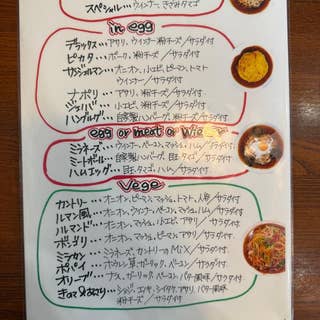 スペシャル…ウィンナー、きざみタマゴ
in egg
デラックス…アサリ、ウィンナー、粉チーズ/サラダ付
ピカタ…ポーク、粉チーズ/サラダ付
オニオン、小エビ、ピーマン、トマト
ウィンナー/サラダ付
ナポリ…アサリ、粉チーズ/サラダ付
小エビ、粉チーズ/サラダ付
自家製ハンバーグ、粉チーズ/サラダ付
egg or meat or
ミラネーズ…ウィンナー、ベーコン、マッシュ、ハム/サラダ付
ミートボール…自家製ハンバーグ、目玉、タマゴ/サラダ付
ハムエッグ…ハム、目玉/サラダ付
Vege
カントリー…オニオン、ピーマン、マッシュ、トマト、人参/サラダ付
ルマン風…オニオン、ウィンナー、ベーコン、マッシュ、ハム/サラダ付
ルマンド…オニオン、マッシュ、小エビ、アサリ/サラダ付
オニオン、マッシュ、ピーマン、トマト/サラダ付
ミラカン…ミラネーズ、カントリーのMIX/サラダ付
ポパイ…ホウレン草、ガーリック、ベーコン/サラダ付
オリーブ…ナス、ガーリック、ベーコン、バター風味/サラダ付
シメジ、エノキ、シイタケ、アサリ、バター風味
粉チーズ/サラダ付